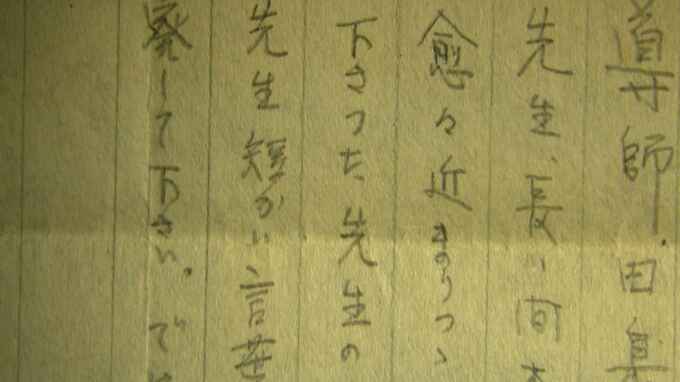 導師.田
先生、長い間
愈々近まりつゝ
下さった、先生の
先生短かい言葉
廃して下さい。で